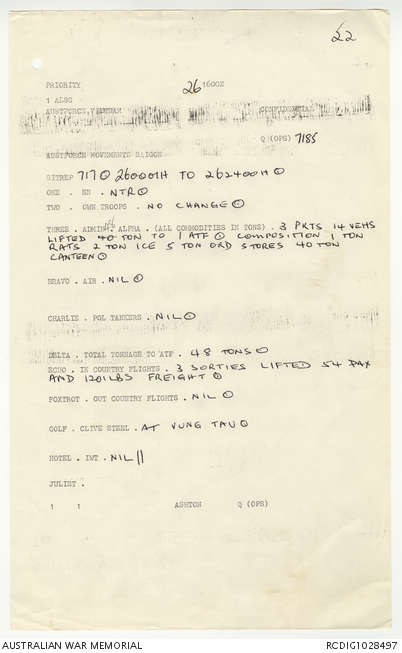 22
PRIORITY 261600Z
1 ALSG
AUSTFORCE VIETNAM CONFIDENTIAL
Q (OPS) 7185
AUSTFORCE MOVEMENTS SAIGON
SITREP 717⊙ 260001H TO 262400H⊙
ONE . EN . NTR⊙
TWO . OWN TROOPS . NO CHANGE⊙
THREE . ADMIN . ALPHA . (ALL COMMODITIES IN TONS) . 3 PKTS 14 VEHS
LIFTED 40 TON TO 1 ATF ⊙ COMPOSITION 1 TON
RATS 2 TON ICE 5 TON ORD STORES 40 TON
CANTEEN⊙
BRAVO . AIR . NIL⊙
CHARLIE . POL TANKERS . NIL⊙
DELTA . TOTAL TONNAGE TO ATF . 48 TONS⊙
ECHO . IN COUNTRY FLIGHTS . 3 SORTIES LIFTED 54 PAX
AND 1201LBS FREIGHT⊙
FOXTROT . OUT COUNTRY FLIGHTS . NIL ⊙
GOLF . CLIVE STEEL . AT VUNG TAU⊙
HOTEL . IWT . NIL //
JULIET .
1 1 ASHTON Q (OPS)
AUSTRALIAN WAR MEMORIAL RCDIG1028497